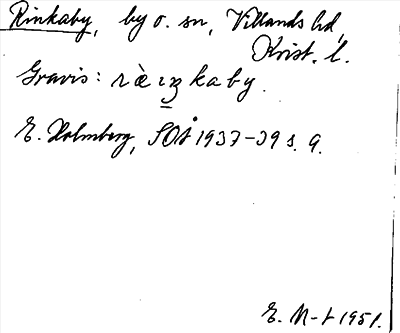 Rinkaby, by o. sn, Villands hd,
Krist. l.
Gravis: kaby.
E. Holmberg, SOÅ 1937-39 s. 9.
E. M-t 1951.